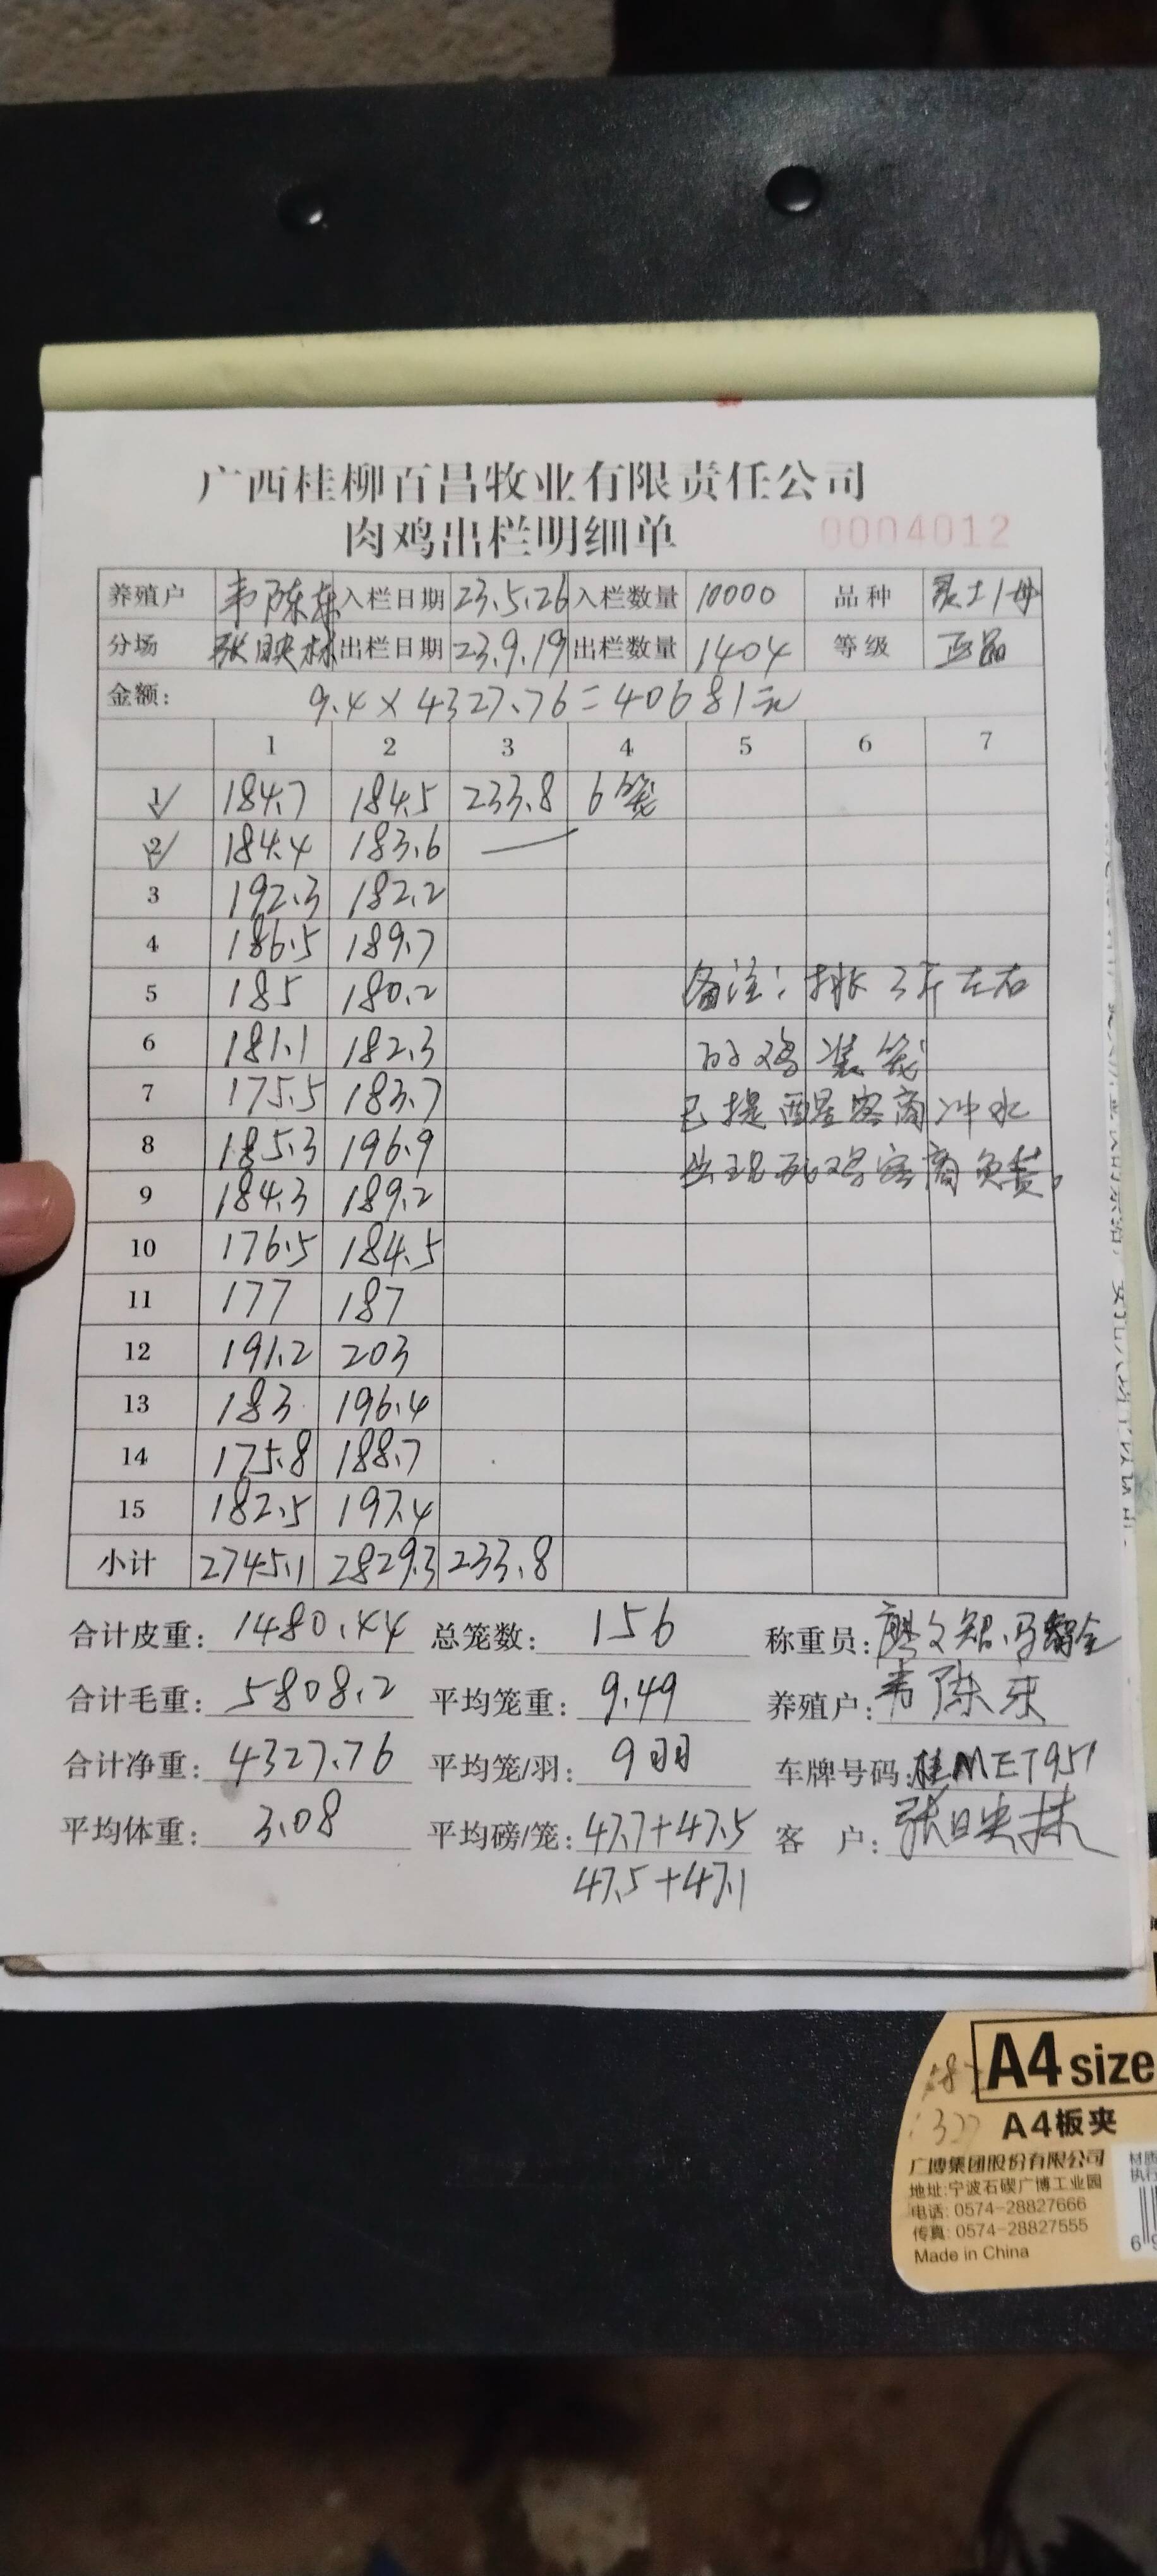 广西桂柳百昌牧业有限责任公司
肉鸡出栏明细单 0004012
养殖户 韦陈东 入栏日期 23.5.26 入栏数量 10000 品种
分场 张映林 出栏日期 23.9.19 出栏数量 1404 等级 正品
金额: 9.4×4327.76=40681元
1 2 3 4 5 6 7
1 184.7 184.5 233.8 6笼
2 184.4 183.6
3 192.3 182.2
4 186.5 189.7
5 185 180.2
6 181.1 182.3
7 175.5 183.7
8 185.3 196.9
9 184.3 189.2
10 176.5 184.5
11 177 187
12 191.2 203
13 183 196.4
14 175.8 188.7
15 182.5 197.4
小计 2745.1 2829.3 233.8
备注: 挑3斤左右
的鸡装笼
已提醒客商冲水
出现死鸡客商负责。
合计皮重: 1480.44 总笼数: 156 称重员:
合计毛重: 5808.2 平均笼重: 9.49 养殖户: 韦陈东
合计净重: 4327.76 平均笼/羽: 9羽 车牌号码: 桂MET951
平均体重: 3.08 平均磅/笼: 47.7+47.5 客 户: 张映林
47.5+47.1
A4 size
A4板夹
广博集团股份有限公司
地址:宁波石碶广博工业园
电话: 0574-28827666
传真: 0574-28827555
Made in China